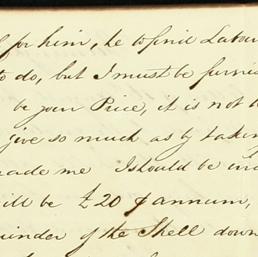 for him, he to find Labour
to do, but I must be furni
be your Price, it is not
give so much as by taking
made me I should be in
ill be £20 ⅌ annum,
inder of the Shell down